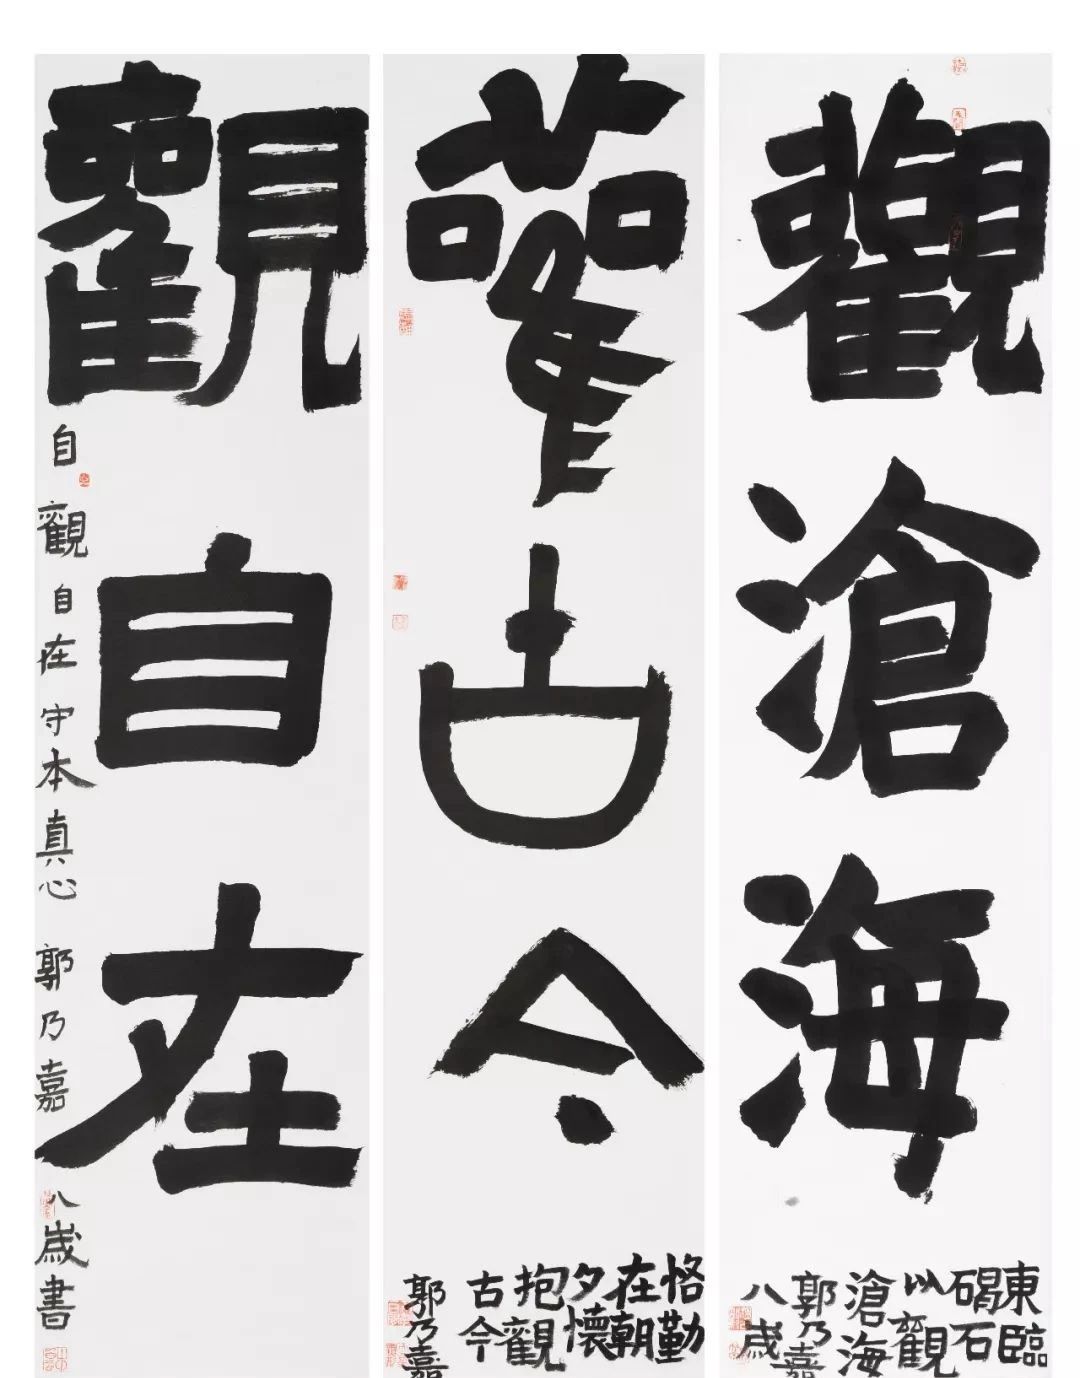 觀滄海
東臨
碣石
以觀
滄海
郭乃嘉
八歲
雚古今
恪勤
在朝
夕懷
抱觀
古今
郭乃嘉
觀自在
自觀自在守本真心 郭乃嘉 八歲書